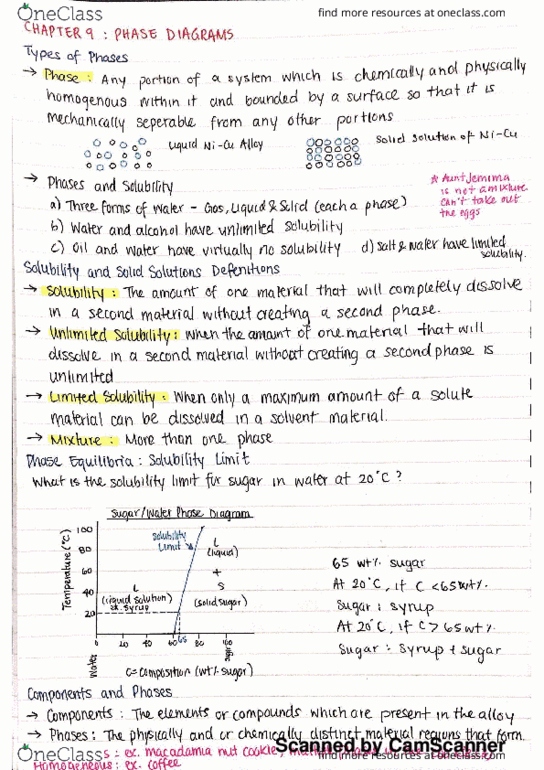 OneClass
find more resources at oneclass.com
CHAPTER 9 : PHASE DIAGRAMS
Types of Phases
→ Phase : Any portion of a system which is chemically and physically
homogenous within it and bounded by a surface so that it is
mechanically seperable from any other portions
Liquid Ni-Cu Alloy
Solid Solution of Ni-Cu
→ Phases and Solubility
* Aunt Jemima
is not a mixture.
Can't take out
the eggs
a) Three forms of water - Gas, Liquid & Solid (each a phase)
b) Water and alcohol have unlimited solubility
c) Oil and water have virtually no solubility
d) Salt & water have limited
solubility.
Solubility and Solid Solutions Defenitions
→ Solubility : The amount of one material that will completely dissolve
in a second material without creating a second phase.
→ Unlimited Solubility : When the amount of one material that will
dissolve in a second material without creating a second phase is
unlimited
→ Limited Solubility : When only a maximum amount of a solute
material can be dissolved in a solvent material.
→ Mixture : More than one phase
Phase Equilibria : Solubility Limit
What is the solubility limit for sugar in water at 20°C ?
Sugar/Water Phase Diagram
Temperature (°C)
100
80
60
40
20
Solubility
Limit
L
(liquid)
+
S
(solid sugar)
L
(liquid solution)
ex. syrup
0 20 40 60 65 80 100
Water
Sugar
C=Composition (wt% sugar)
65 wt% sugar
At 20°C, if C < 65wt%.
Sugar : syrup
At 20°C, if C > 65 wt%
Sugar : syrup + sugar
Components and Phases
→ Components : The elements or compounds which are present in the alloy
→ Phases : The physically and or chemically distinct material regions that form.
s : ex. macadamia nut cookie,
Homogeneous : ex. coffee
Scanned by CamScanner
OneClass
find more resources at oneclass.com